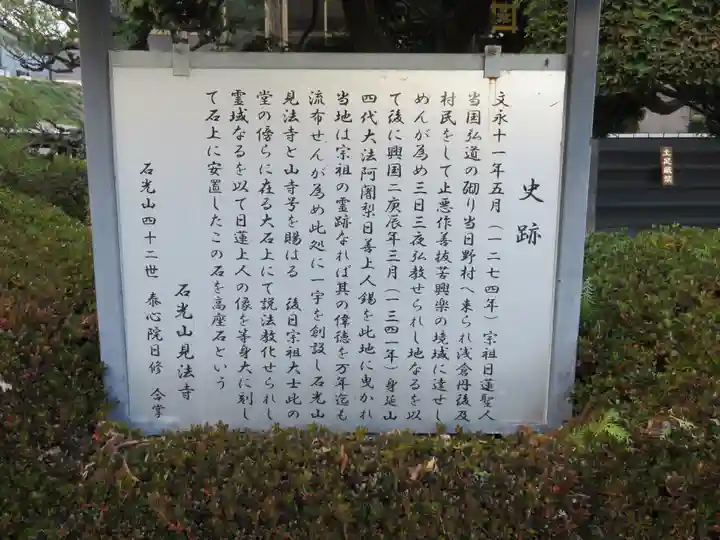 史跡
文永十一年五月(一二七四年)宗祖日蓮聖人
当国弘道の砌り当日野村へ来られ浅倉丹後及
村民をして止悪作善抜苦興楽の境域に達せし
めんが為め三日三夜弘教せられし地なるを以
て後に興国二庚辰年三月(一三四一年)身延山
四代大法阿闍梨日善上人錫を此地に曳かれ
当地は宗祖の霊跡なれば其の偉徳を万年迄も
流布せんが為め此処に一宇を創設し石光山
見法寺と山寺号を賜はる 後日宗祖大士此の
堂の傍らに在る大石上にて説法教化せられし
霊域なるを以て日蓮上人の像を等身大に刻し
て石上に安置したこの石を高座石という
石光山見法寺
石光山四十二世 泰心院日修 合掌
土足厳禁